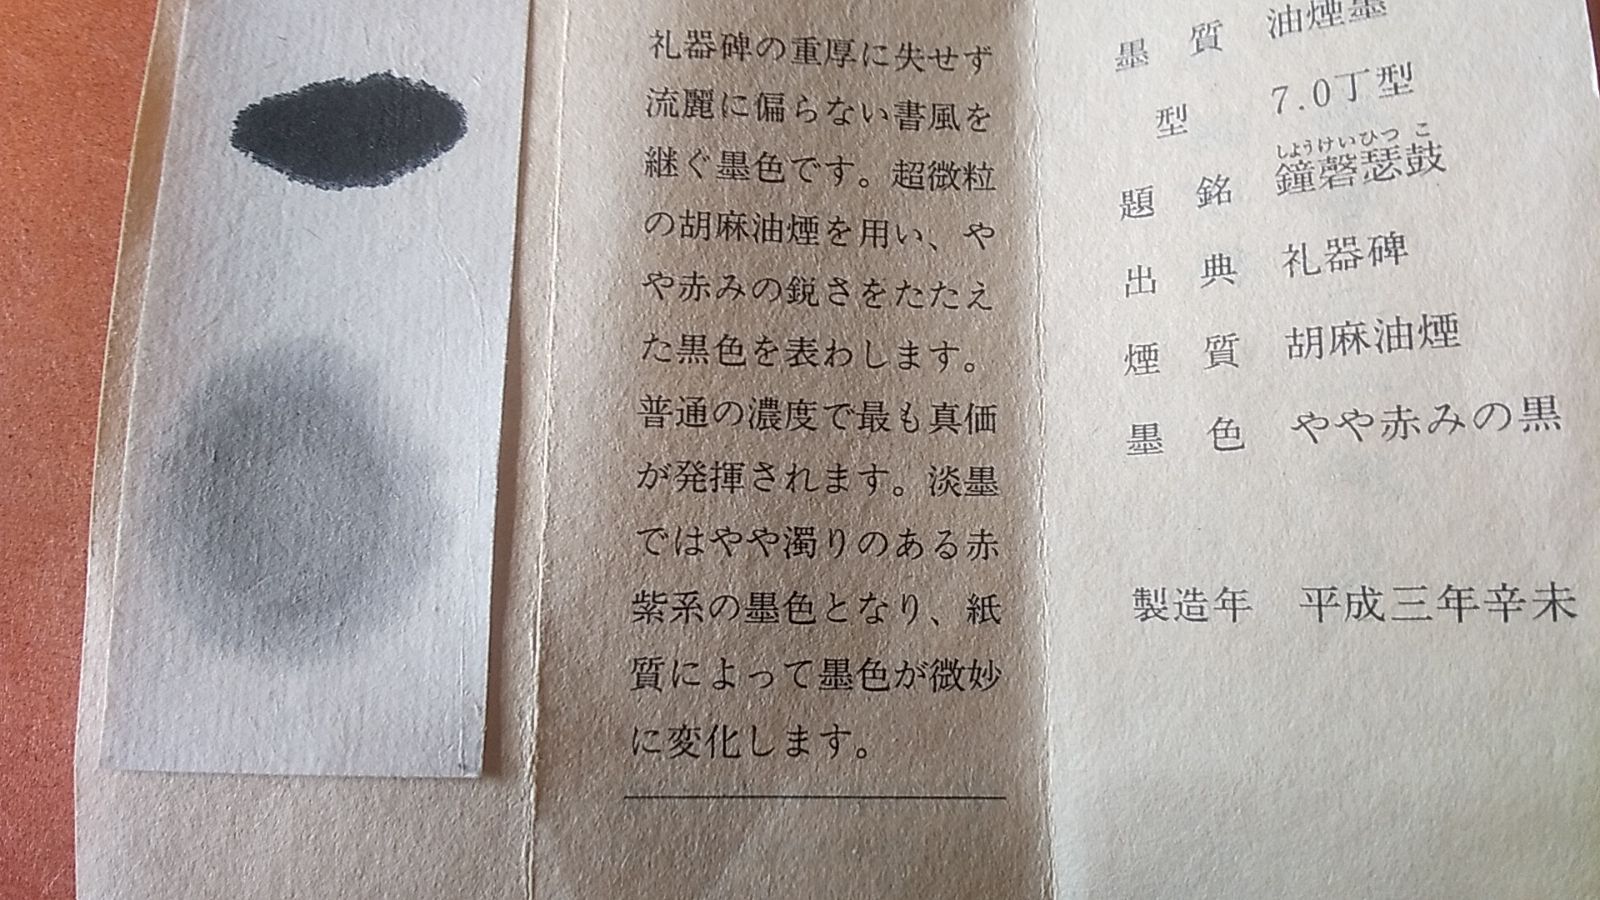 礼器碑の重厚に失せず
流麗に偏らない書風を
継ぐ墨色です。超微粒
の胡麻油煙を用い、や
や赤みの鋭さをたたえ
た黒色を表わします。
普通の濃度で最も真価
が発揮されます。淡墨
ではやや濁りのある赤
紫系の墨色となり、紙
質によって墨色が微妙
に変化します。
墨質 油煙墨
型 7.0丁型
しょうけいひつこ
題銘 鐘磬瑟鼓
出典 礼器碑
煙質 胡麻油煙
墨色 やや赤みの黒
製造年 平成三年辛未